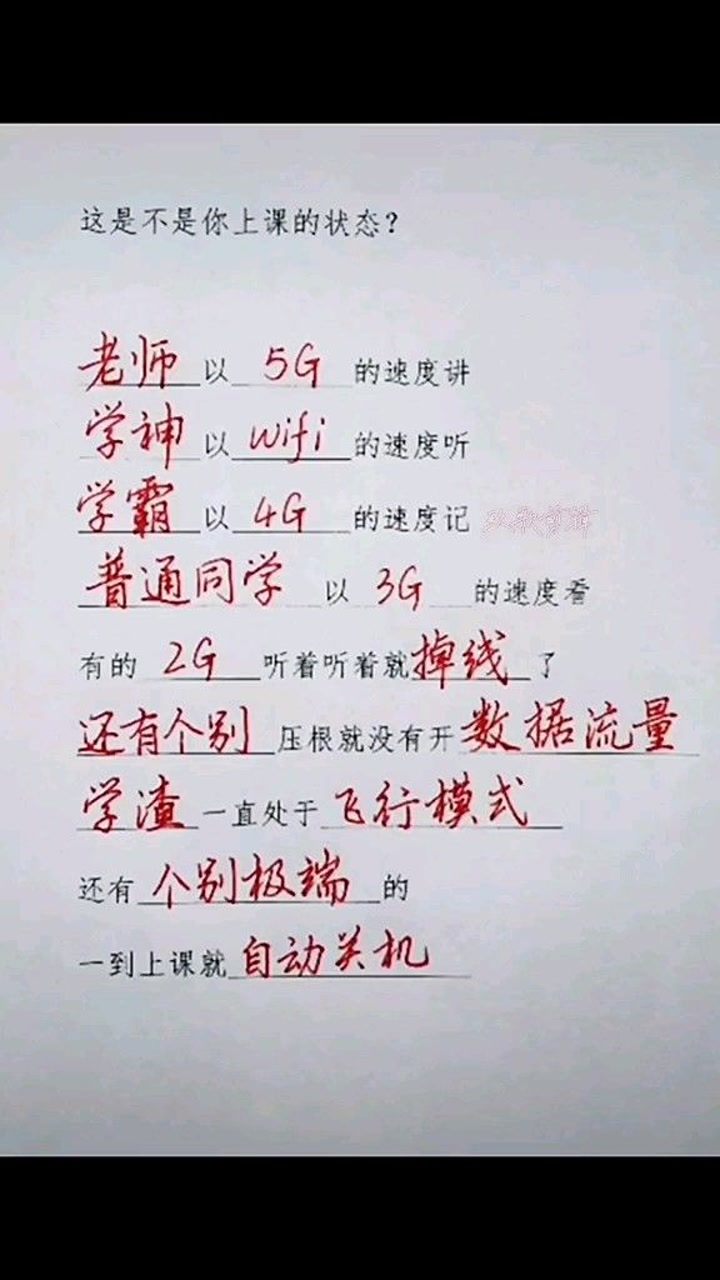 这是不是你上课的状态？
老师以5G的速度讲
学神以wifi的速度听
学霸以4G的速度记
普通同学以3G的速度看
有的2G听着听着就掉线了
还有个别压根就没有开数据流量
学渣一直处于飞行模式
还有个别极端的
一到上课就自动关机